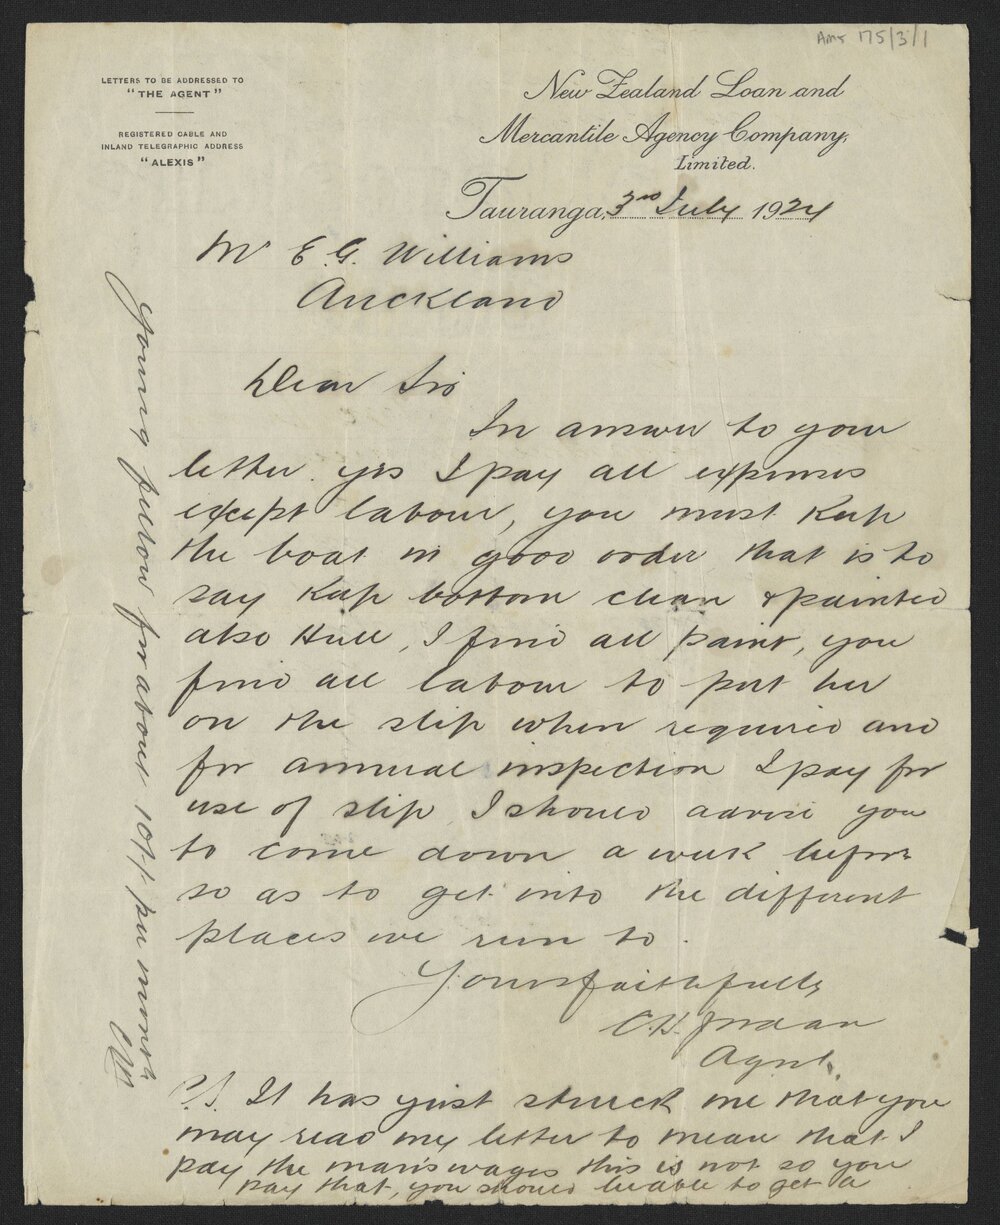 Ams 175/3/1
LETTERS TO BE ADDRESSED TO
"THE AGENT"
REGISTERED CABLE AND
INLAND TELEGRAPHIC ADDRESS
"ALEXIS"
New Zealand Loan and
Mercantile Agency Company,
Limited.
Tauranga, 3rd July 1924
Mr E. G. Williams
Auckland
Dear Sir
In answer to your
letter. yes I pay all expenses
except labour, you must keep
the boat in good order that is to
say keep bottom clean & painted
also Hull, I find all paint, you
find all labour to put her
on the slip when required and
for annual inspection I pay for
use of slip I should advise you
to come down a week before
so as to get into the different
places we run to.
Yours faithfully
Jordan
Agent.
P.S. It has just struck me that you
may read my letter to mean that I
pay the man's wages this is not so you
pay that, you should be able to get a
young fellow for about 10/- per month